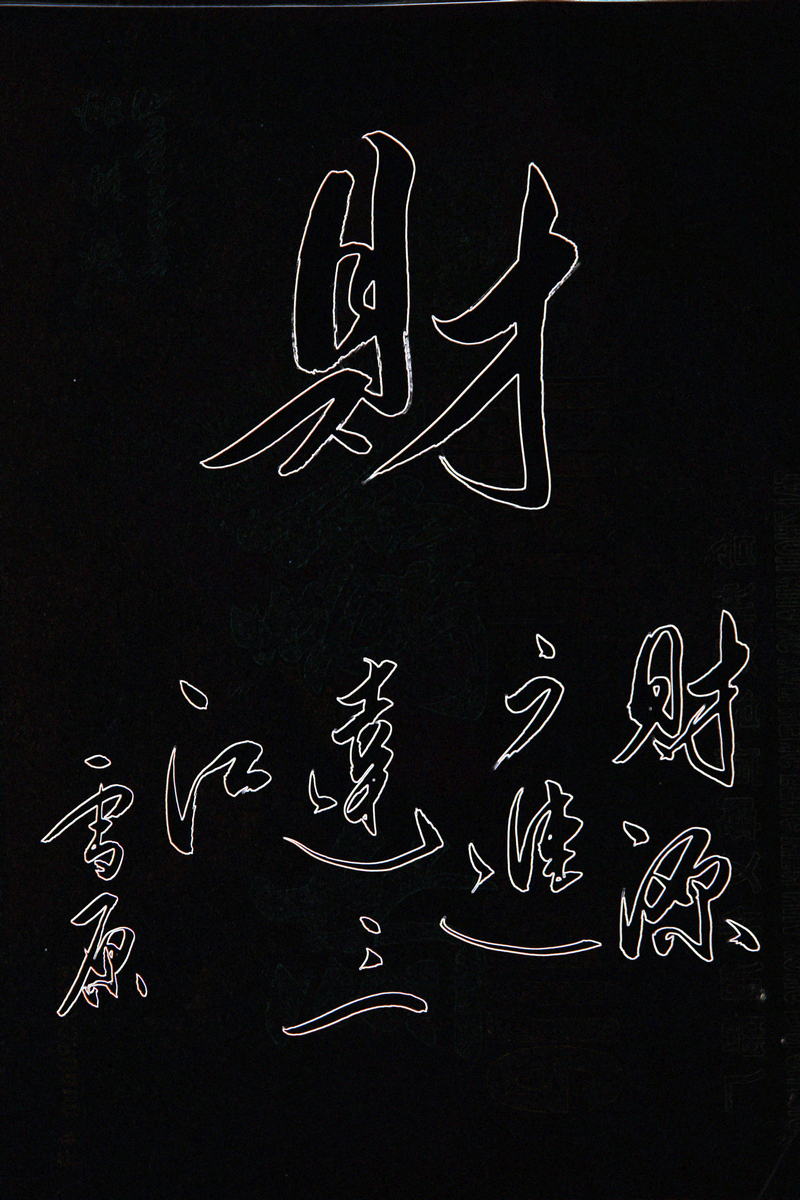 財
財源
广進
達三
江
雪原